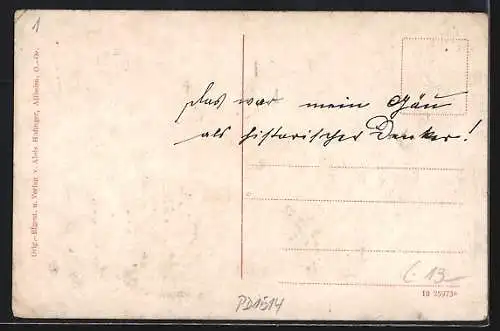 1
Orig.-Eigent. u. Verlag v. Alois Hodinger, Altheim, O.-Oe.
Das war mein
als historischer Denker!
C 13
10 25973*
PD1514